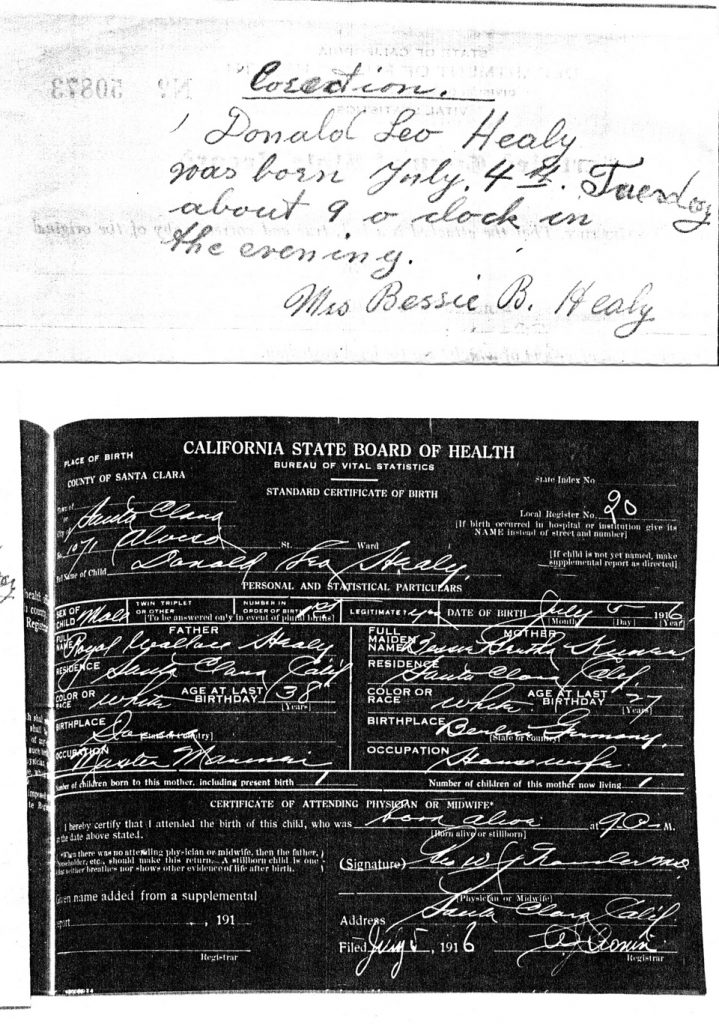 Corection.
Donald Leo Healy
was born July. 4th. Tuesday
about 9 o clock in
the evening.
Mrs Bessie B. Healy
No 50873
CALIFORNIA STATE BOARD OF HEALTH
BUREAU OF VITAL STATISTICS
STANDARD CERTIFICATE OF BIRTH
PLACE OF BIRTH
COUNTY OF SANTA CLARA
State Index No
Local Register No. 20
[If birth occurred in hospital or institution give its
NAME instead of street and number]
Santa Clara
1071 Alviso St. Ward
[If child is not yet named, make
supplemental report as directed]
Full Name of Child Donald Leo Healy.
PERSONAL AND STATISTICAL PARTICULARS
SEX OF CHILD Male
TWIN TRIPLET OR OTHER
NUMBER IN ORDER OF BIRTH
[To be answered only in event of plural births]
LEGITIMATE? yes
DATE OF BIRTH July 5 1916
[Month] [Day] [Year]
FATHER
FULL NAME Royal Wallace Healy
RESIDENCE Santa Clara Calif
COLOR OR RACE White
AGE AT LAST BIRTHDAY 38
[Years]
BIRTHPLACE
OCCUPATION Master
MOTHER
FULL MAIDEN NAME Bessie Bertha
RESIDENCE Santa Clara Calif.
COLOR OR RACE White
AGE AT LAST BIRTHDAY 27
[Years]
BIRTHPLACE Berlin Germany.
[State or country]
OCCUPATION Housewife
Number of children born to this mother, including present birth 1
Number of children of this mother now living 1
CERTIFICATE OF ATTENDING PHYSICIAN OR MIDWIFE*
I hereby certify that I attended the birth of this child, who was born alive at 9 P M.
[Born alive or stillborn]
on the date above stated.
*When there was no attending physician or midwife, then the father,
householder, etc., should make this return. A stillborn child is one
that neither breathes nor shows other evidence of life after birth.
(Signature) Geo W
[Physician or Midwife]
Given name added from a supplemental
report , 191
Registrar
Address Santa Clara Calif.
Filed July 5, 1916
Registrar